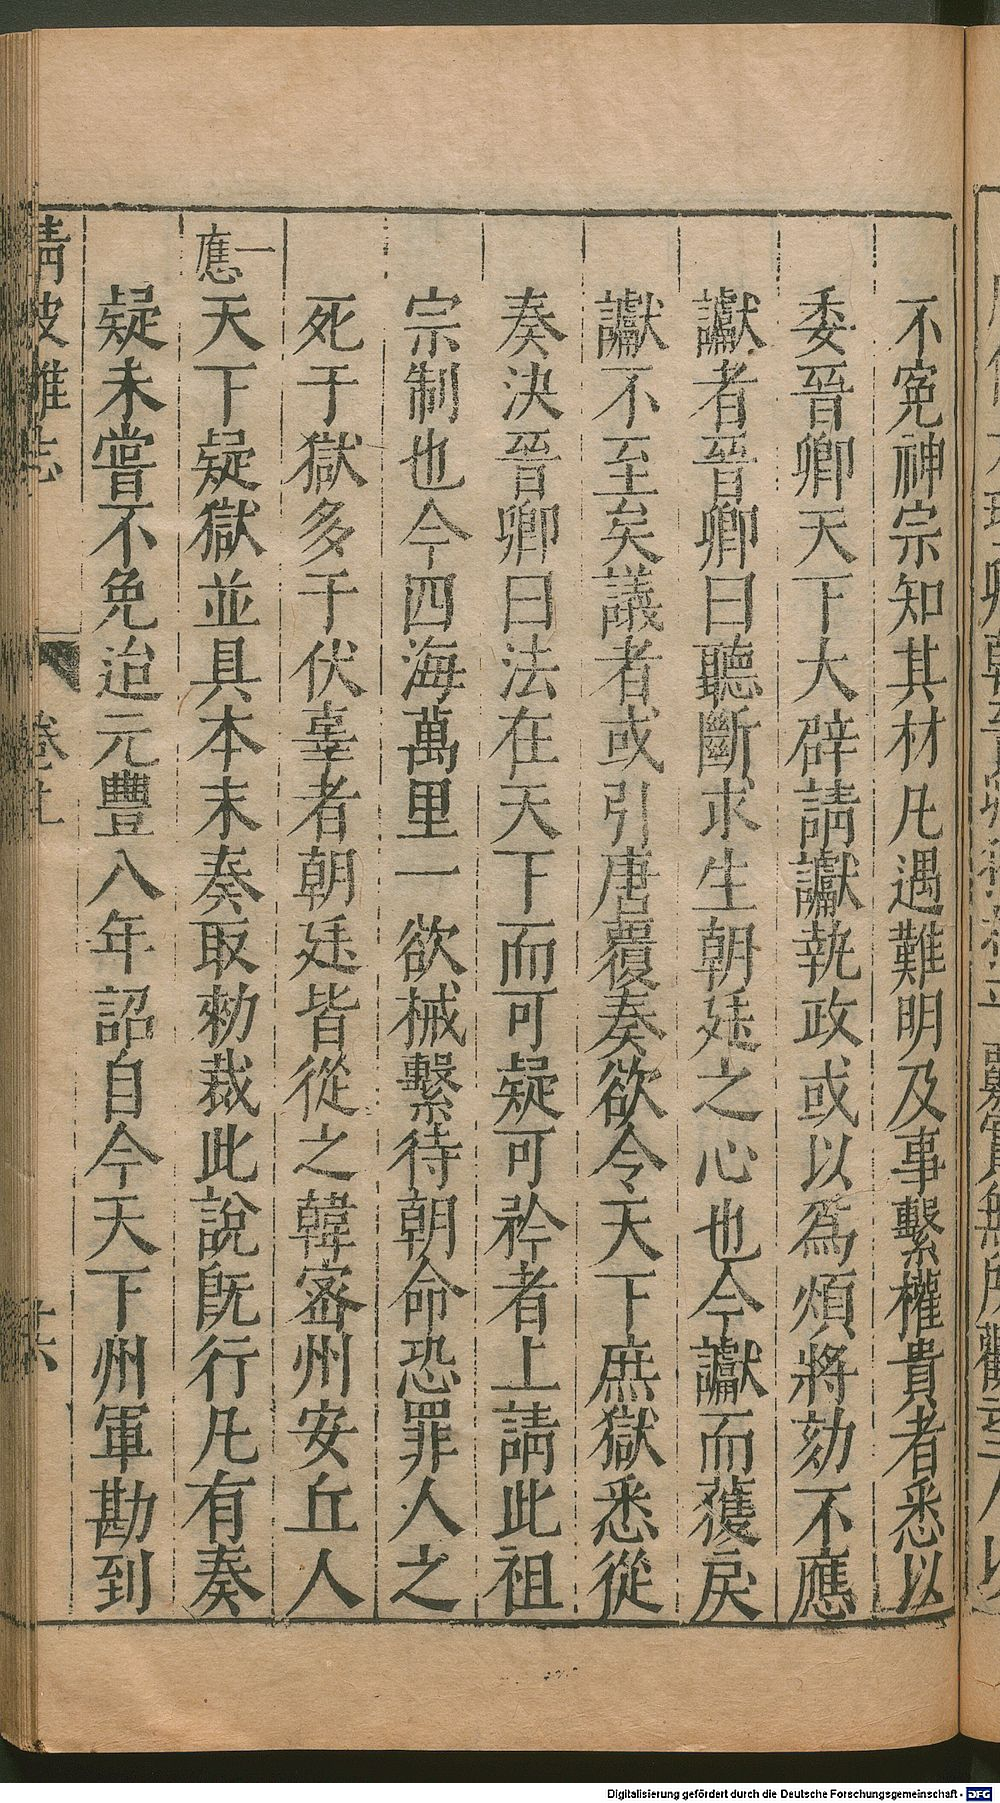 不寃神宗知其材凡遇難明及事繫權貴者悉以
委晉卿天下大辟請讞執政或以爲煩將劾不應
讞者晉卿曰聽斷求生朝廷之心也今讞而獲戾
讞不至矣議者或引唐覆奏欲令天下庶獄悉從
奏決晉卿曰法在天下而可疑可矜者上請此祖
宗制也今四海萬里一欲械繫待朝命恐罪人之
死于獄多于伏辜者朝廷皆從之韓密州安丘人
一應天下疑獄並具本末奏取勑裁此說旣行凡有奏
疑未嘗不免迨元豐八年詔自今天下州軍勘到
清波雜志
Digitalisierung gefördert durch die Deutsche Forschungsgemeinschaft - DFG